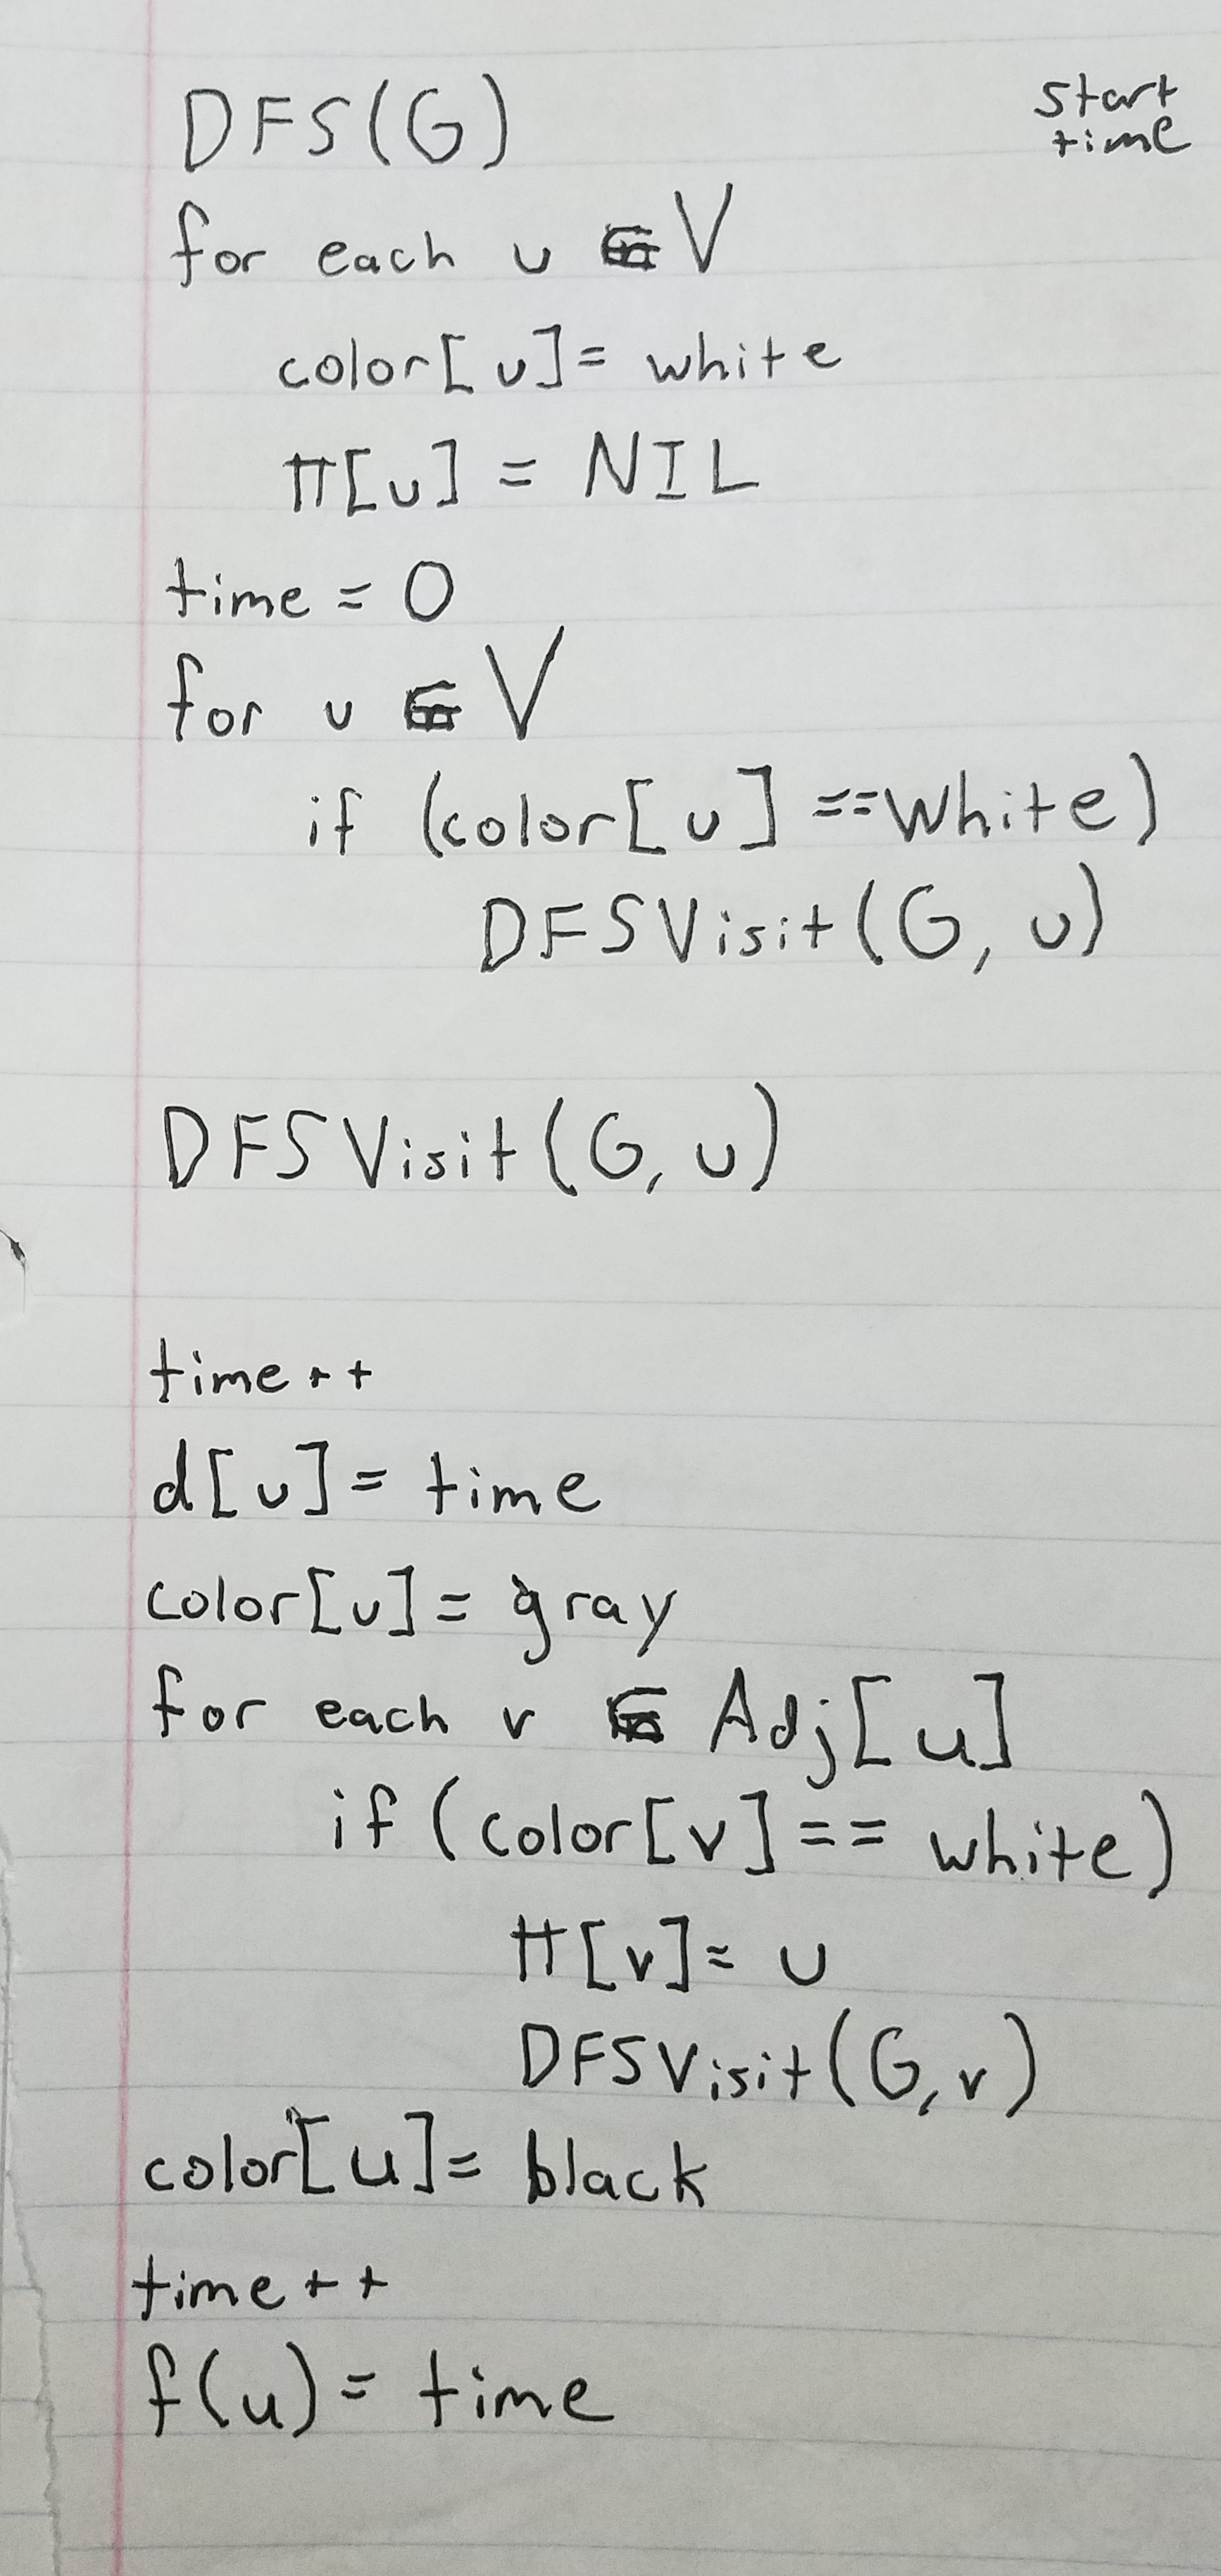 DFS(G)
start
time
for each u ∈ V
color[u] = white
π[u] = NIL
time = 0
for u ∈ V
if (color[u] == white)
DFSVisit(G, u)
DFSVisit(G, u)
time++
d[u] = time
color[u] = gray
for each v ∈ Adj[u]
if (color[v] == white)
π[v] = u
DFSVisit(G, v)
color[u] = black
time++
f(u) = time